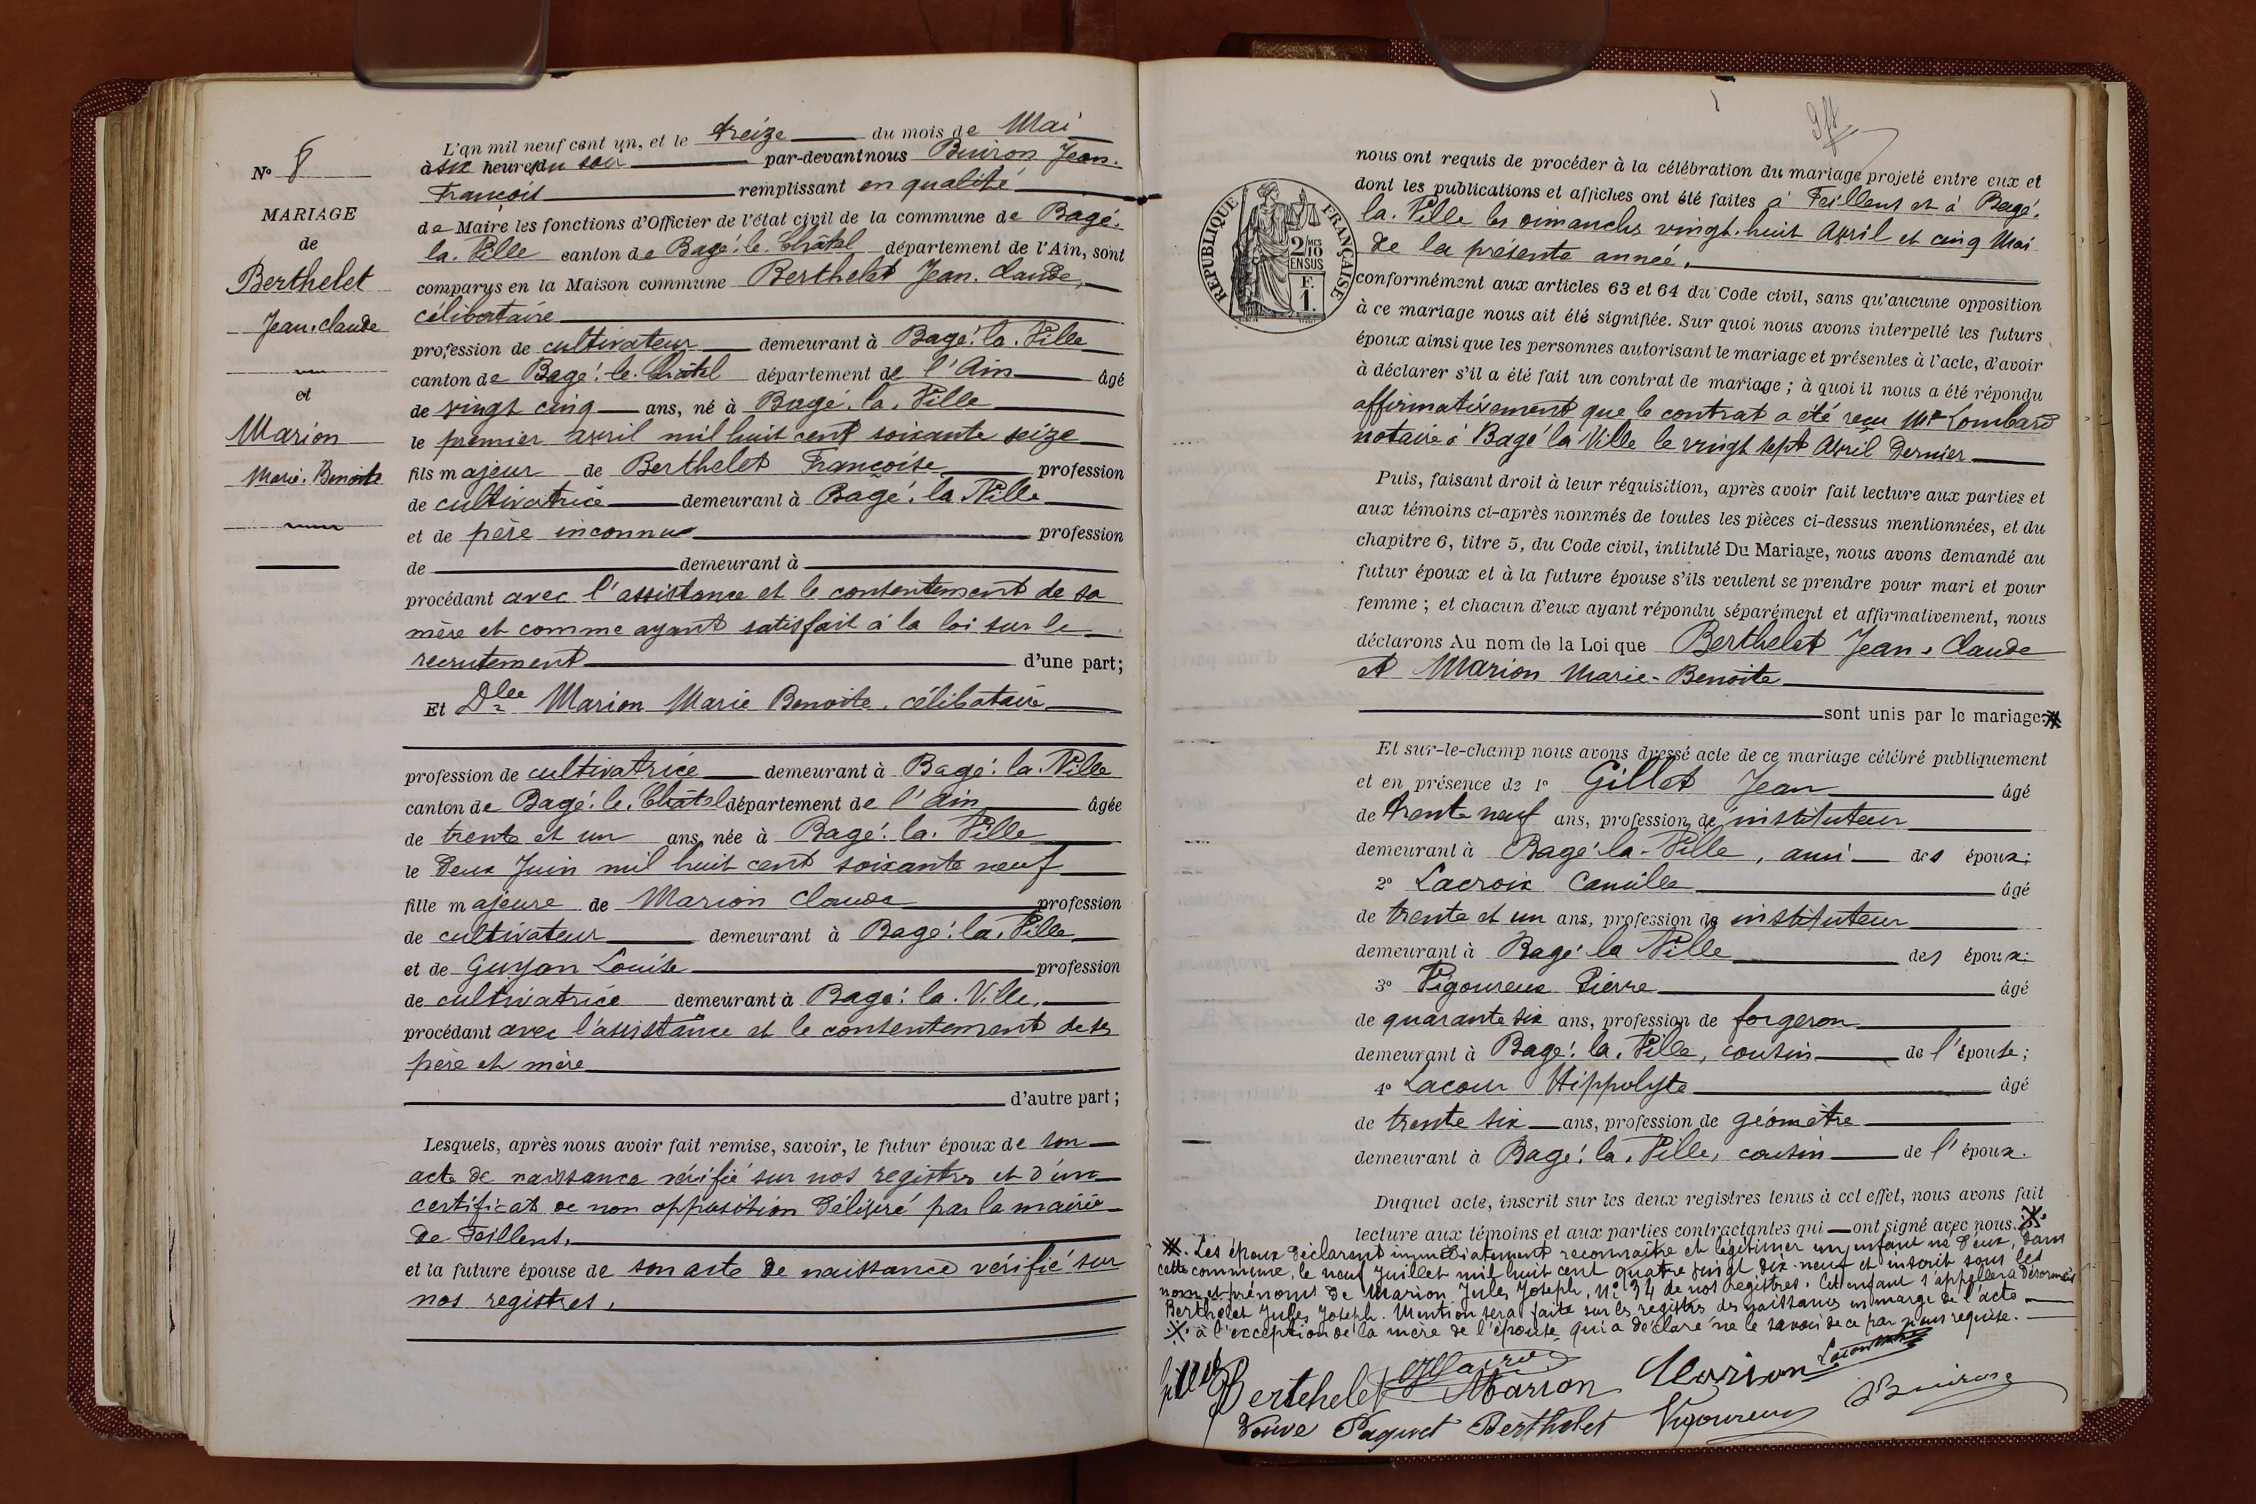 N° 8
MARIAGE
de
Berthelet
Jean-Claude
et
Marion
Marie-Benoite
L'an mil neuf cent un, et le treize du mois de Mai
à six heures du soir par-devant nous Buiron Jean-
François remplissant en qualité
de Maire les fonctions d'Officier de l'état civil de la commune de Bagé-
la-Ville canton de Bagé-le-Châtel département de l'Ain, sont
comparus en la Maison commune Berthelet Jean-Claude,
célibataire
profession de cultivateur demeurant à Bagé-la-Ville
canton de Bagé-le-Châtel département de l'Ain âgé
de vingt cinq ans, né à Bagé-la-Ville
le premier avril mil huit cent soixante seize
fils majeur de Berthelet Françoise profession
de cultivatrice demeurant à Bagé-la-Ville
et de père inconnu profession
de demeurant à
procédant avec l'assistance et le consentement de sa
mère et comme ayant satisfait à la loi sur le
recrutement d'une part;
Et Dlle Marion Marie Benoite, célibataire
profession de cultivatrice demeurant à Bagé-la-Ville
canton de Bagé-le-Châtel département de l'Ain âgée
de trente et un ans, née à Bagé-la-Ville
le deux Juin mil huit cent soixante neuf
fille majeure de Marion Claude profession
de cultivateur demeurant à Bagé-la-Ville
et de Guyon Louise profession
de cultivatrice demeurant à Bagé-la-Ville,
procédant avec l'assistance et le consentement de ses
père et mère
d'autre part;
Lesquels, après nous avoir fait remise, savoir, le futur époux de son
acte de naissance vérifié sur nos registres et d'un
certificat de non opposition délivré par la mairie
de Feillens,
et la future épouse de son acte de naissance vérifié sur
nos registres,
RÉPUBLIQUE FRANÇAISE
2/10
MES
EN SUS
F.
1.
nous ont requis de procéder à la célébration du mariage projeté entre eux et
dont les publications et affiches ont été faites à Feillens et à Bagé-
la-Ville les dimanches vingt-huit Avril et cinq Mai
de la présente année,
conformément aux articles 63 et 64 du Code civil, sans qu'aucune opposition
à ce mariage nous ait été signifiée. Sur quoi nous avons interpellé les futurs
époux ainsi que les personnes autorisant le mariage et présentes à l'acte, d'avoir
à déclarer s'il a été fait un contrat de mariage; à quoi il nous a été répondu
affirmativement que le contrat a été reçu Me Lombard
notaire à Bagé la Ville le vingt sept Avril dernier
Puis, faisant droit à leur réquisition, après avoir fait lecture aux parties et
aux témoins ci-après nommés de toutes les pièces ci-dessus mentionnées, et du
chapitre 6, titre 5, du Code civil, intitulé Du Mariage, nous avons demandé au
futur époux et à la future épouse s'ils veulent se prendre pour mari et pour
femme; et chacun d'eux ayant répondu séparément et affirmativement, nous
déclarons Au nom de la Loi que Berthelet Jean-Claude
et Marion Marie-Benoite
sont unis par le mariage.
Et sur-le-champ nous avons dressé acte de ce mariage célébré publiquement
et en présence de 1° Gillet Jean âgé
de trente neuf ans, profession de instituteur
demeurant à Bagé-la-Ville, ami des époux;
2° Lacroix Camille âgé
de trente et un ans, profession de instituteur
demeurant à Bagé-la Ville des époux;
3° Vigoureux Pierre âgé
de quarante six ans, profession de forgeron
demeurant à Bagé-la-Ville, cousin de l'épouse;
4° Lacour Hippolyte âgé
de trente six ans, profession de géomètre
demeurant à Bagé-la-Ville, cousin de l'époux.
Duquel acte, inscrit sur les deux registres tenus à cet effet, nous avons fait
lecture aux témoins et aux parties contractantes qui ont signé avec nous.
Les époux déclarent immédiatement reconnaître et légitimer un enfant né d'eux, dans
cette commune, le neuf Juillet mil huit cent quatre vingt dix-neuf et inscrit sous les
nom et prénoms de Marion Jules Joseph, N° 34 de nos registres. Cet enfant s'appellera désormais
Berthelet Jules Joseph. Mention sera faite sur les registres des naissances en marge de l'acte
à l'exception de la mère de l'épouse qui a déclaré ne le savoir de ce par nous requise.
Gillet Bertehelet Marion Marion
Veuve Paquet Berthelet Vigoureux Buiron